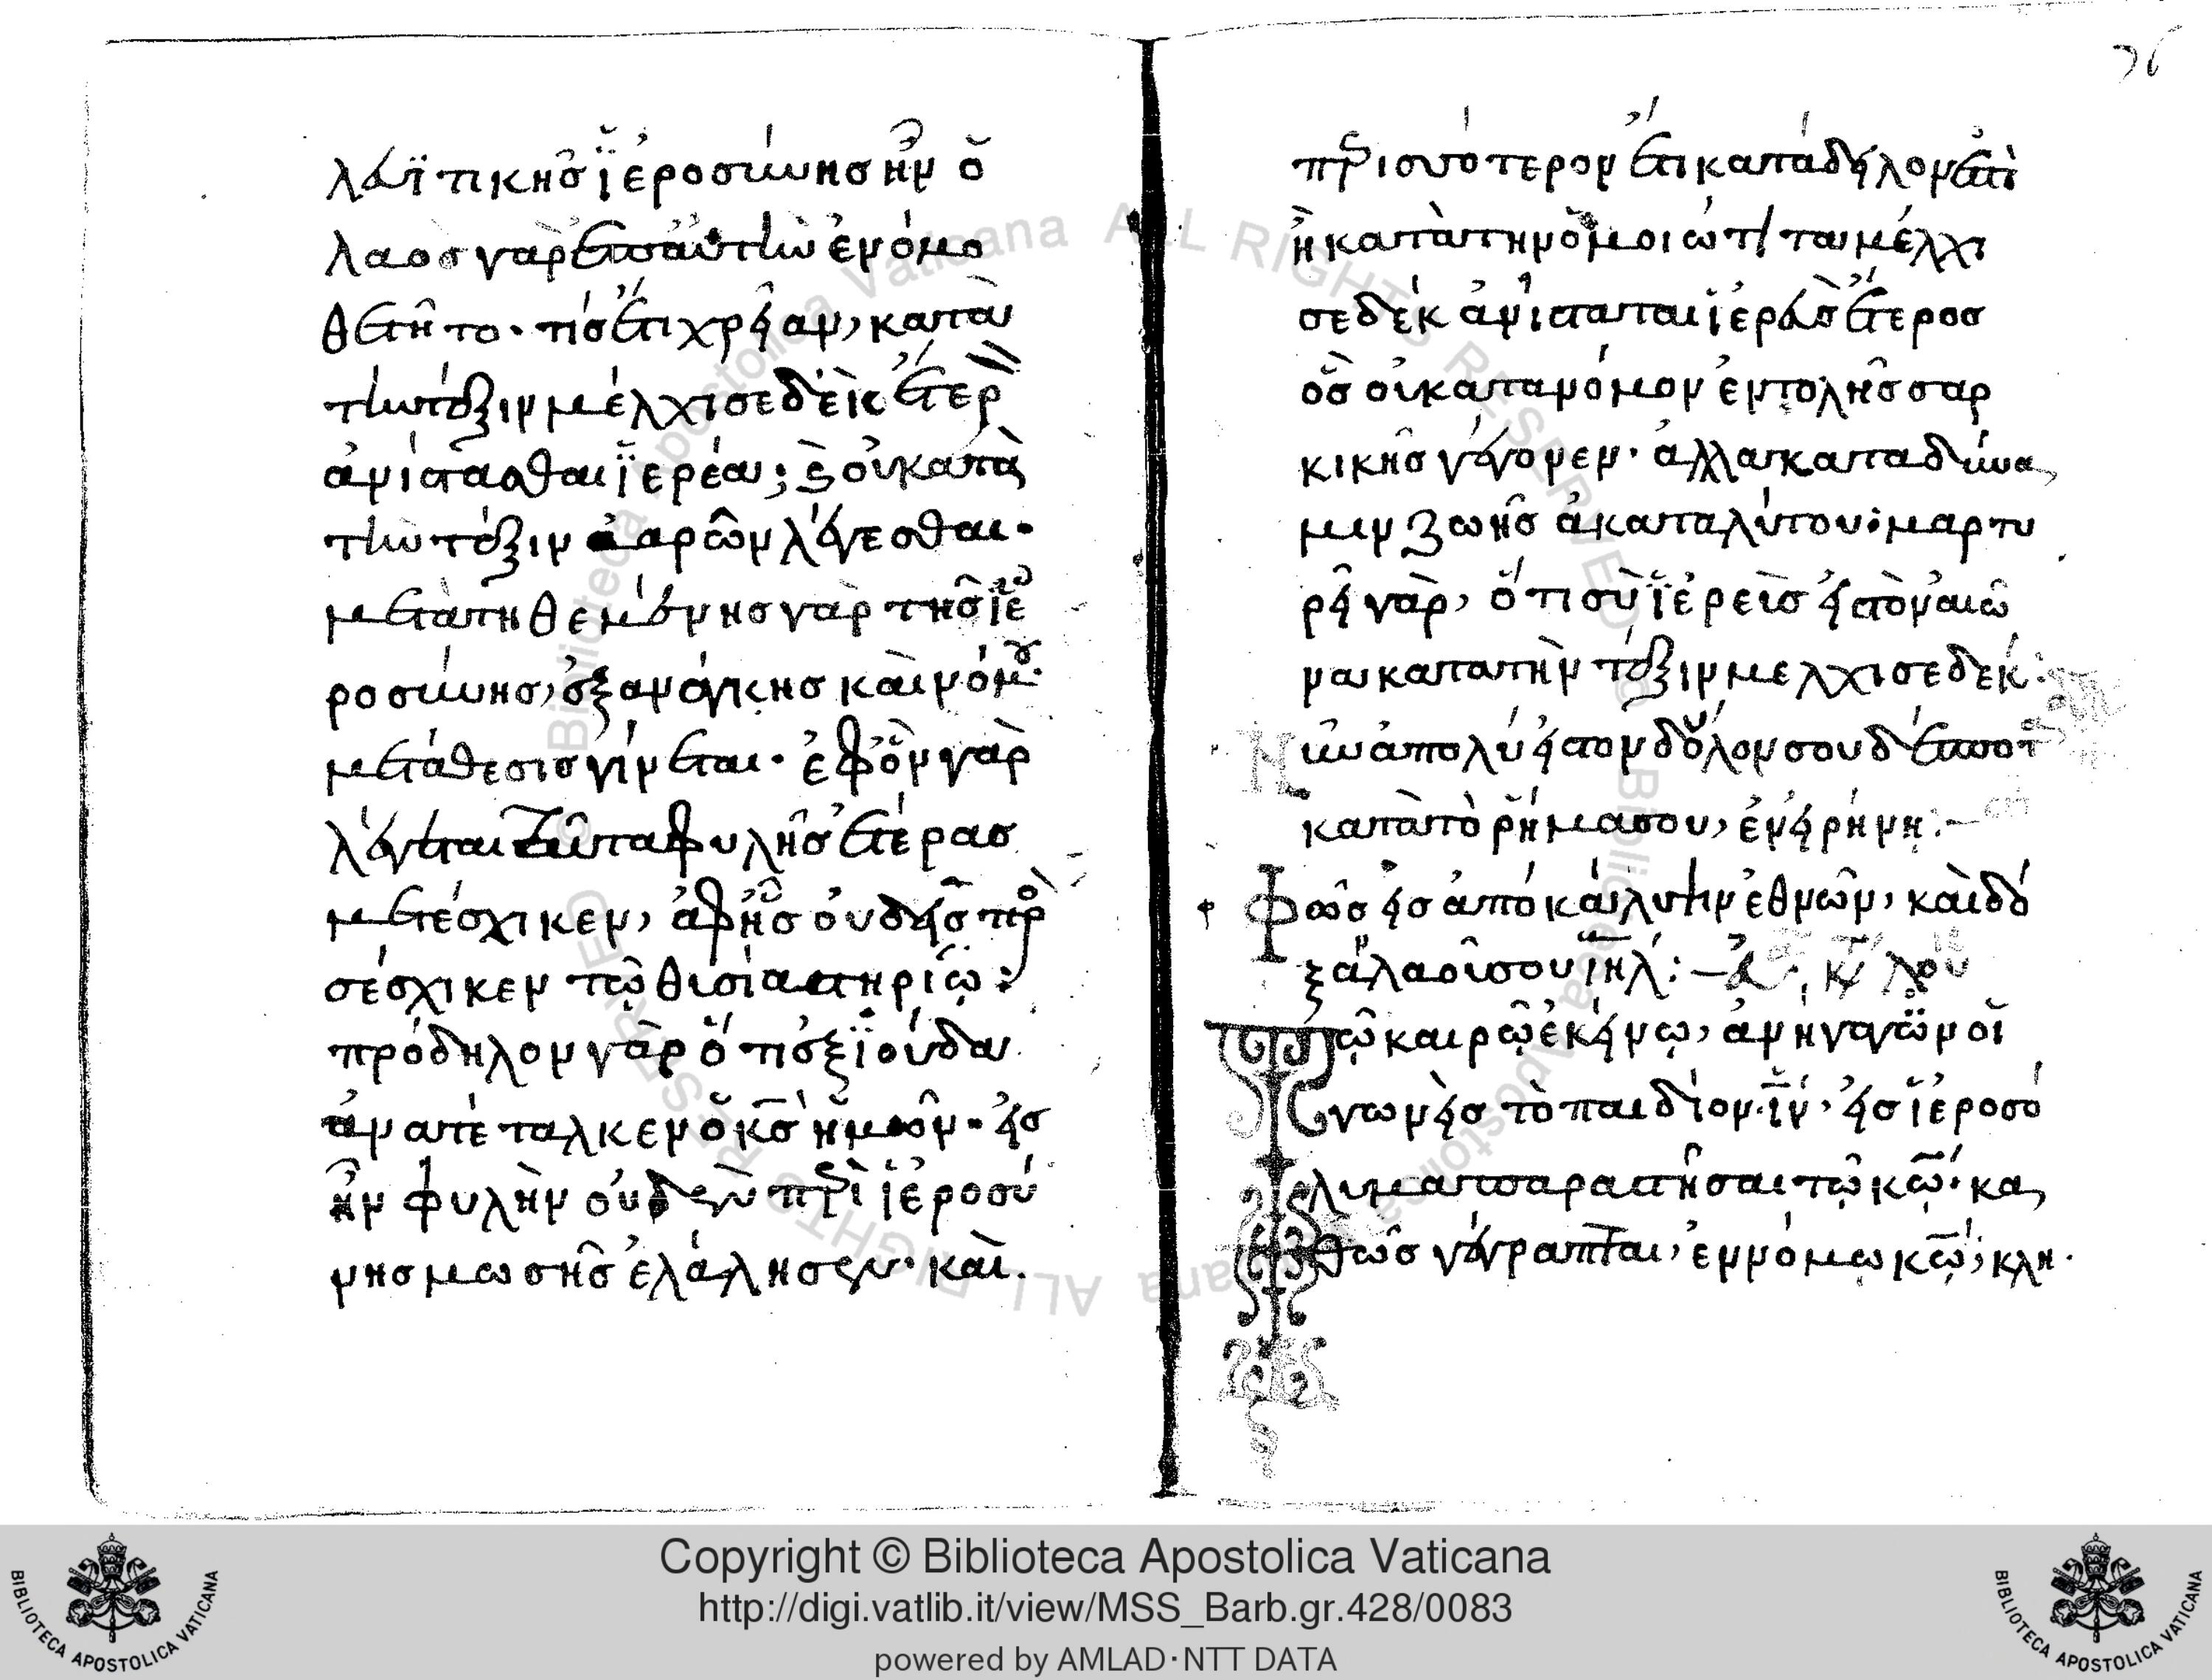 λαϊτικῆσ ἱεροσύνησ ἦν ὁ
λαὸσ γὰρ ἐπ αὐτὴν ἐνόμο
θετῆτο· τίσ ἔτι χρεία ν, κατὰ
τὴν τάξιν μελχισεδὲκ ἕτερ
ἀνίστασθαι ἱερέα; καὶ οὐ κατὰ
τὴν τάξιν ἀαρῶν λέγεσθαι·
μετατηθεμένησ γὰρ τῆσ ἱε
ροσύνησ, ἐξ ἀνάγκησ καὶ νόμου
μετάθεσισ γίνεται· ἐφ ὃν γὰρ
λέγεται ταῦτα φυλῆσ ἑτέρασ
μετέσχικεν, ἀφ ἧσ οὐδεὶσ προ
σέσχικεν τῷ θυσιαστηρίῳ:
πρόδηλον γὰρ ὅτι ἐξ ἰούδα
ἀνατέταλκεν ὁ κ̅σ̅ ἡμῶν· εἰσ
ἣν φυλὴν οὐδὲν περὶ ἱεροσύ
νησ μωσῆσ ἐλάλησεν· καὶ
περισσότερον ἔτι κατάδηλον ἐστὶ
ἢ κατὰ τὴν ὁμοιώτητα μελχι
σεδὲκ ἀνίσταται ἱερεὺσ ἕτεροσ
ὃσ οὐ κατὰ νόμον ἐντολῆσ σαρ
κικῆσ γέγονεν· ἀλλὰ κατὰ δύνα
μιν ζωῆσ ἀκαταλύτου· μαρτυ
ρεῖ γὰρ, ὅτι σὺ ἱερεὺσ εἰσ τὸν αἰῶ
να κατὰ τὴν τάξιν μελχισεδέκ:
Νῦν ἀπολύεισ τὸν δοῦλον σου δέσποτα
κατὰ τὸ ρῆμα σου, ἐν εἰρήνη:—
Φῶσ εἰσ ἀποκάλυψιν ἐθνῶν, καὶ δό
ξαν λαοῦ σου ἰ̅η̅λ̅:—
Τῷ καιρῷ ἐκείνῳ, ἀνήγαγον οἱ
γωνεῖσ τὸ παιδίον ι̅ν̅· εἰσ ἱεροσό
λυμα παραστῆσαι τῷ κ̅ῳ̅· κα
θῶσ γέγραπται, ἐν νόμω κ̅ῳ̅, κλη·
Copyright © Biblioteca Apostolica Vaticana
http://digi.vatlib.it/view/MSS_Barb.gr.428/0083
powered by AMLAD·NTT DATA
BIBLIOTECA APOSTOLICA VATICANA
BIBLIOTECA APOSTOLICA VATICANA